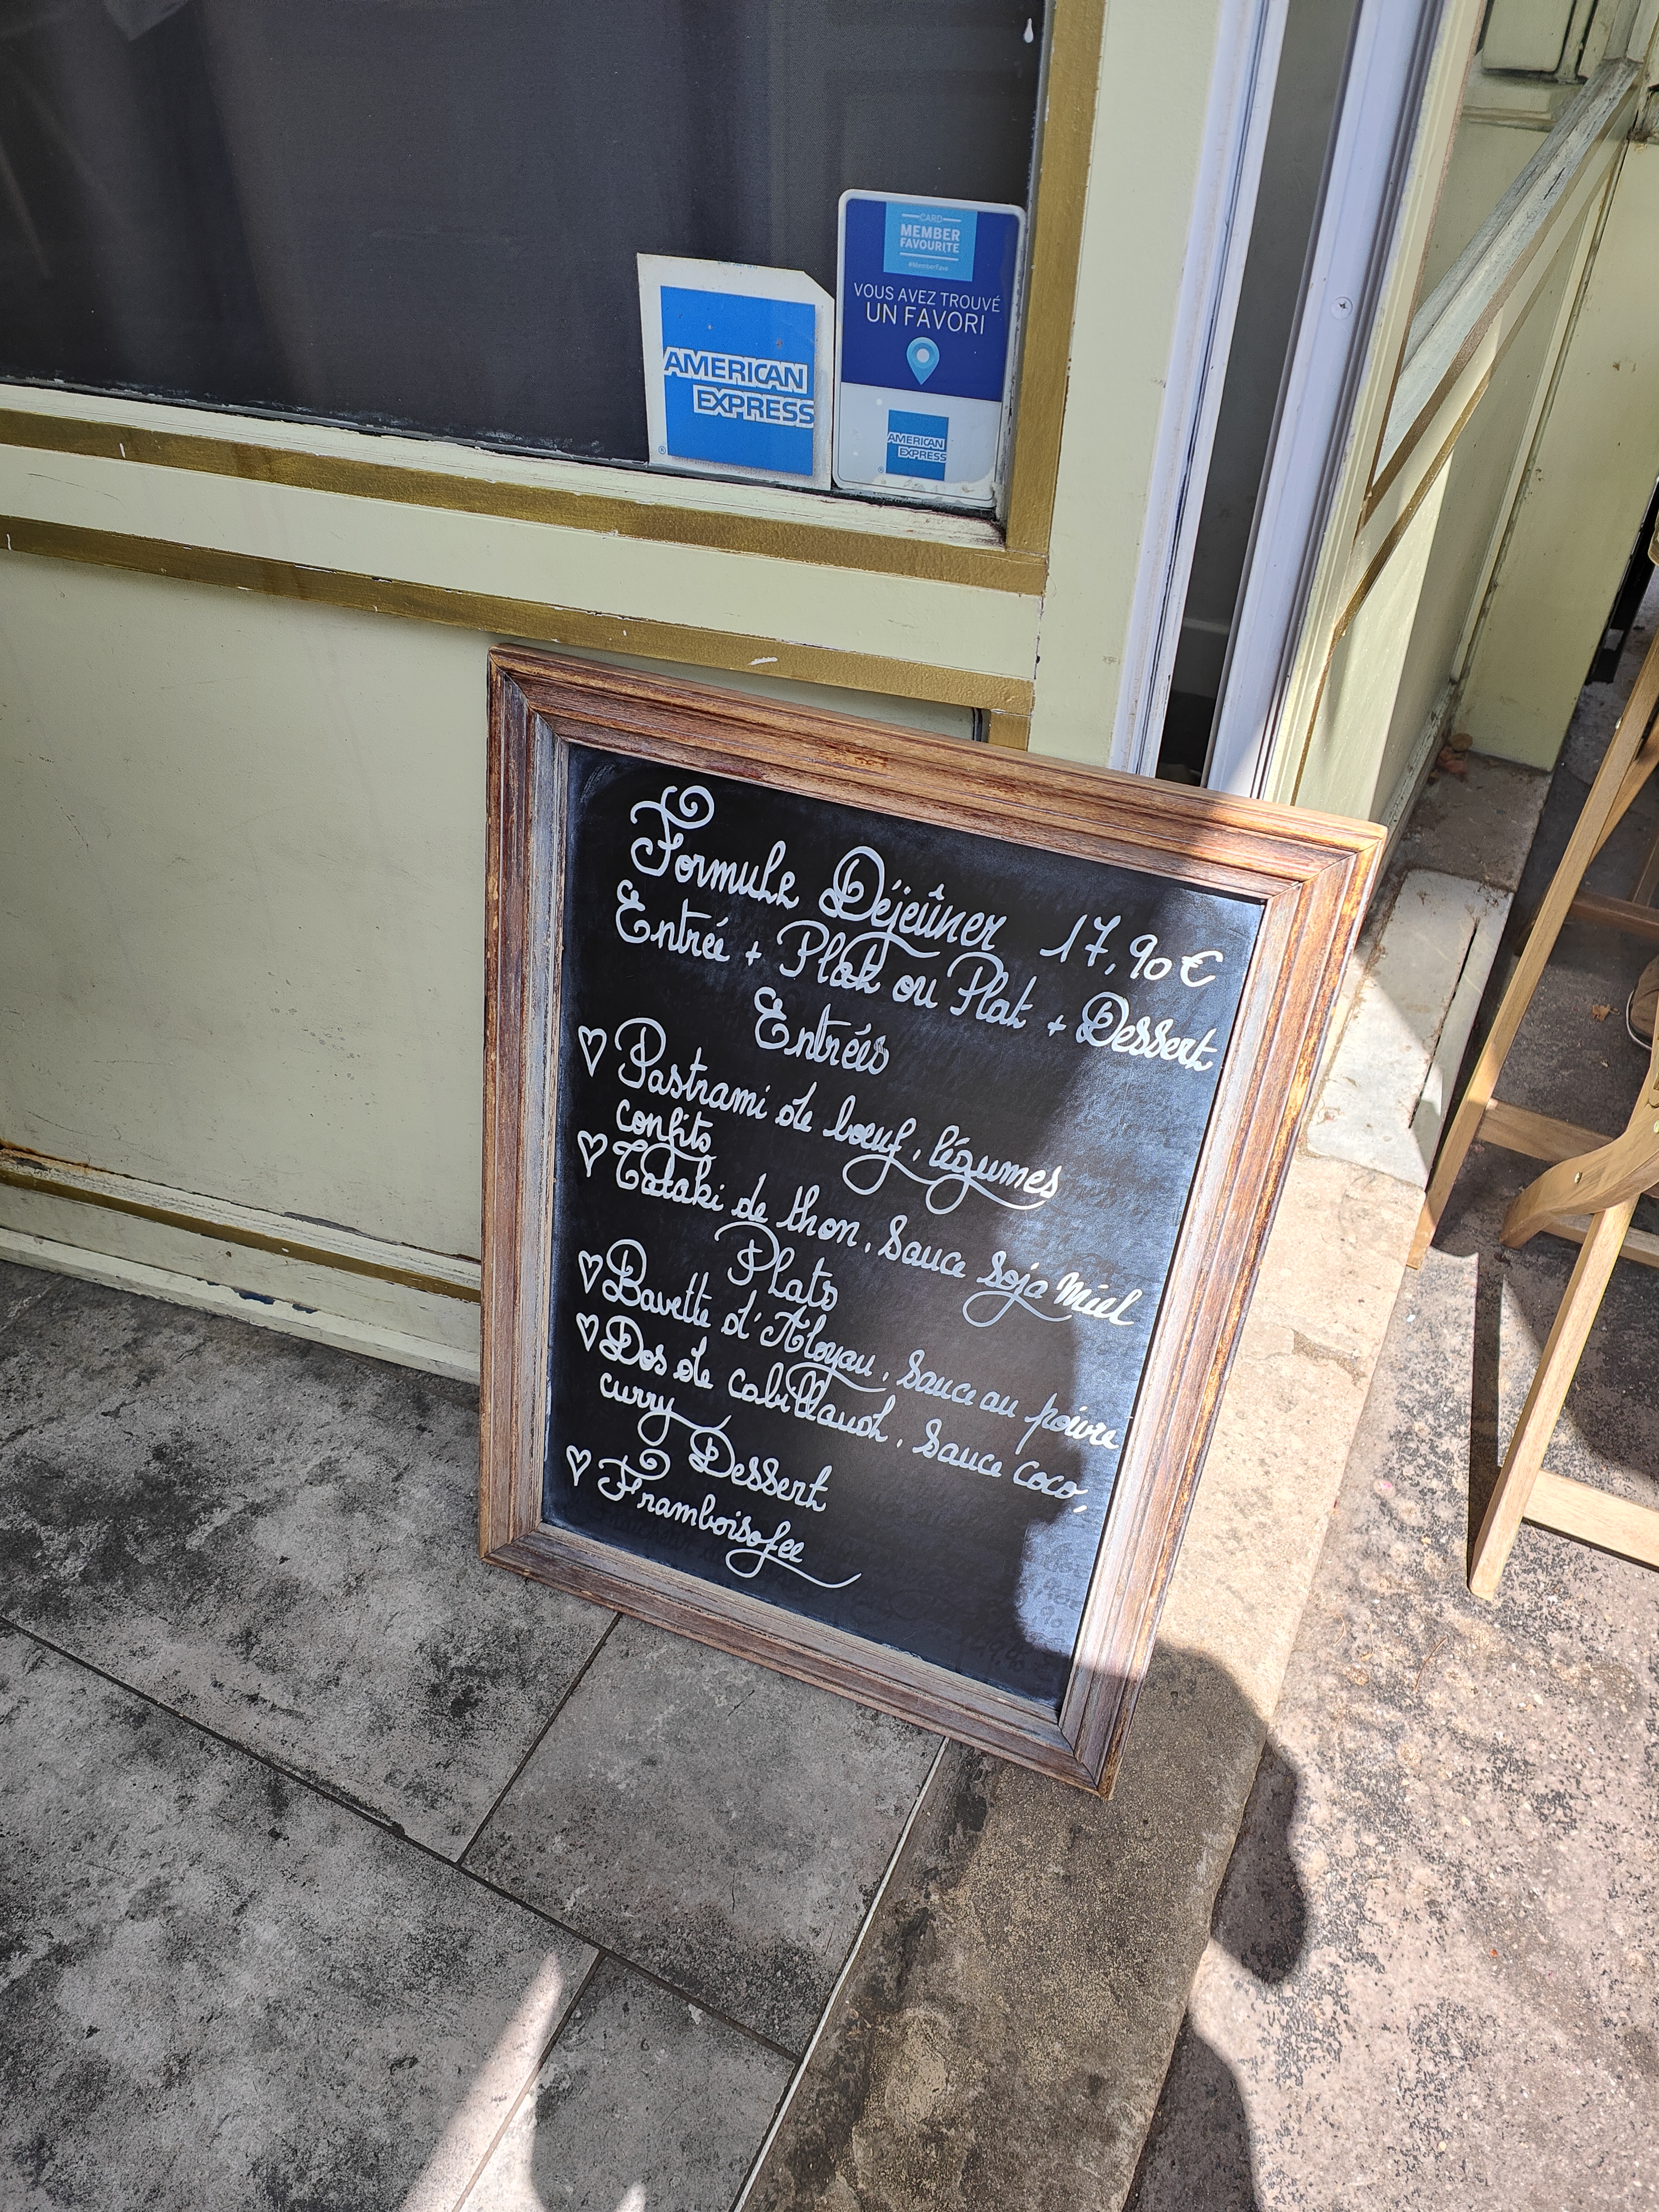 CARD
MEMBER
FAVOURITE
#MemberFave
VOUS AVEZ TROUVÉ
UN FAVORI
AMERICAN
EXPRESS
®
AMERICAN
EXPRESS
®
Formule Déjeûner 17,90€
Entrée + Plat ou Plat + Dessert
Entrées
♡ Pastrami de bœuf, légumes
confits
♡ Tataki de thon, sauce soja miel
Plats
♡ Bavette d'Aloyau, sauce au poivre
♡ Dos de cabillaud, sauce coco,
curry
Dessert
♡ Framboisofee